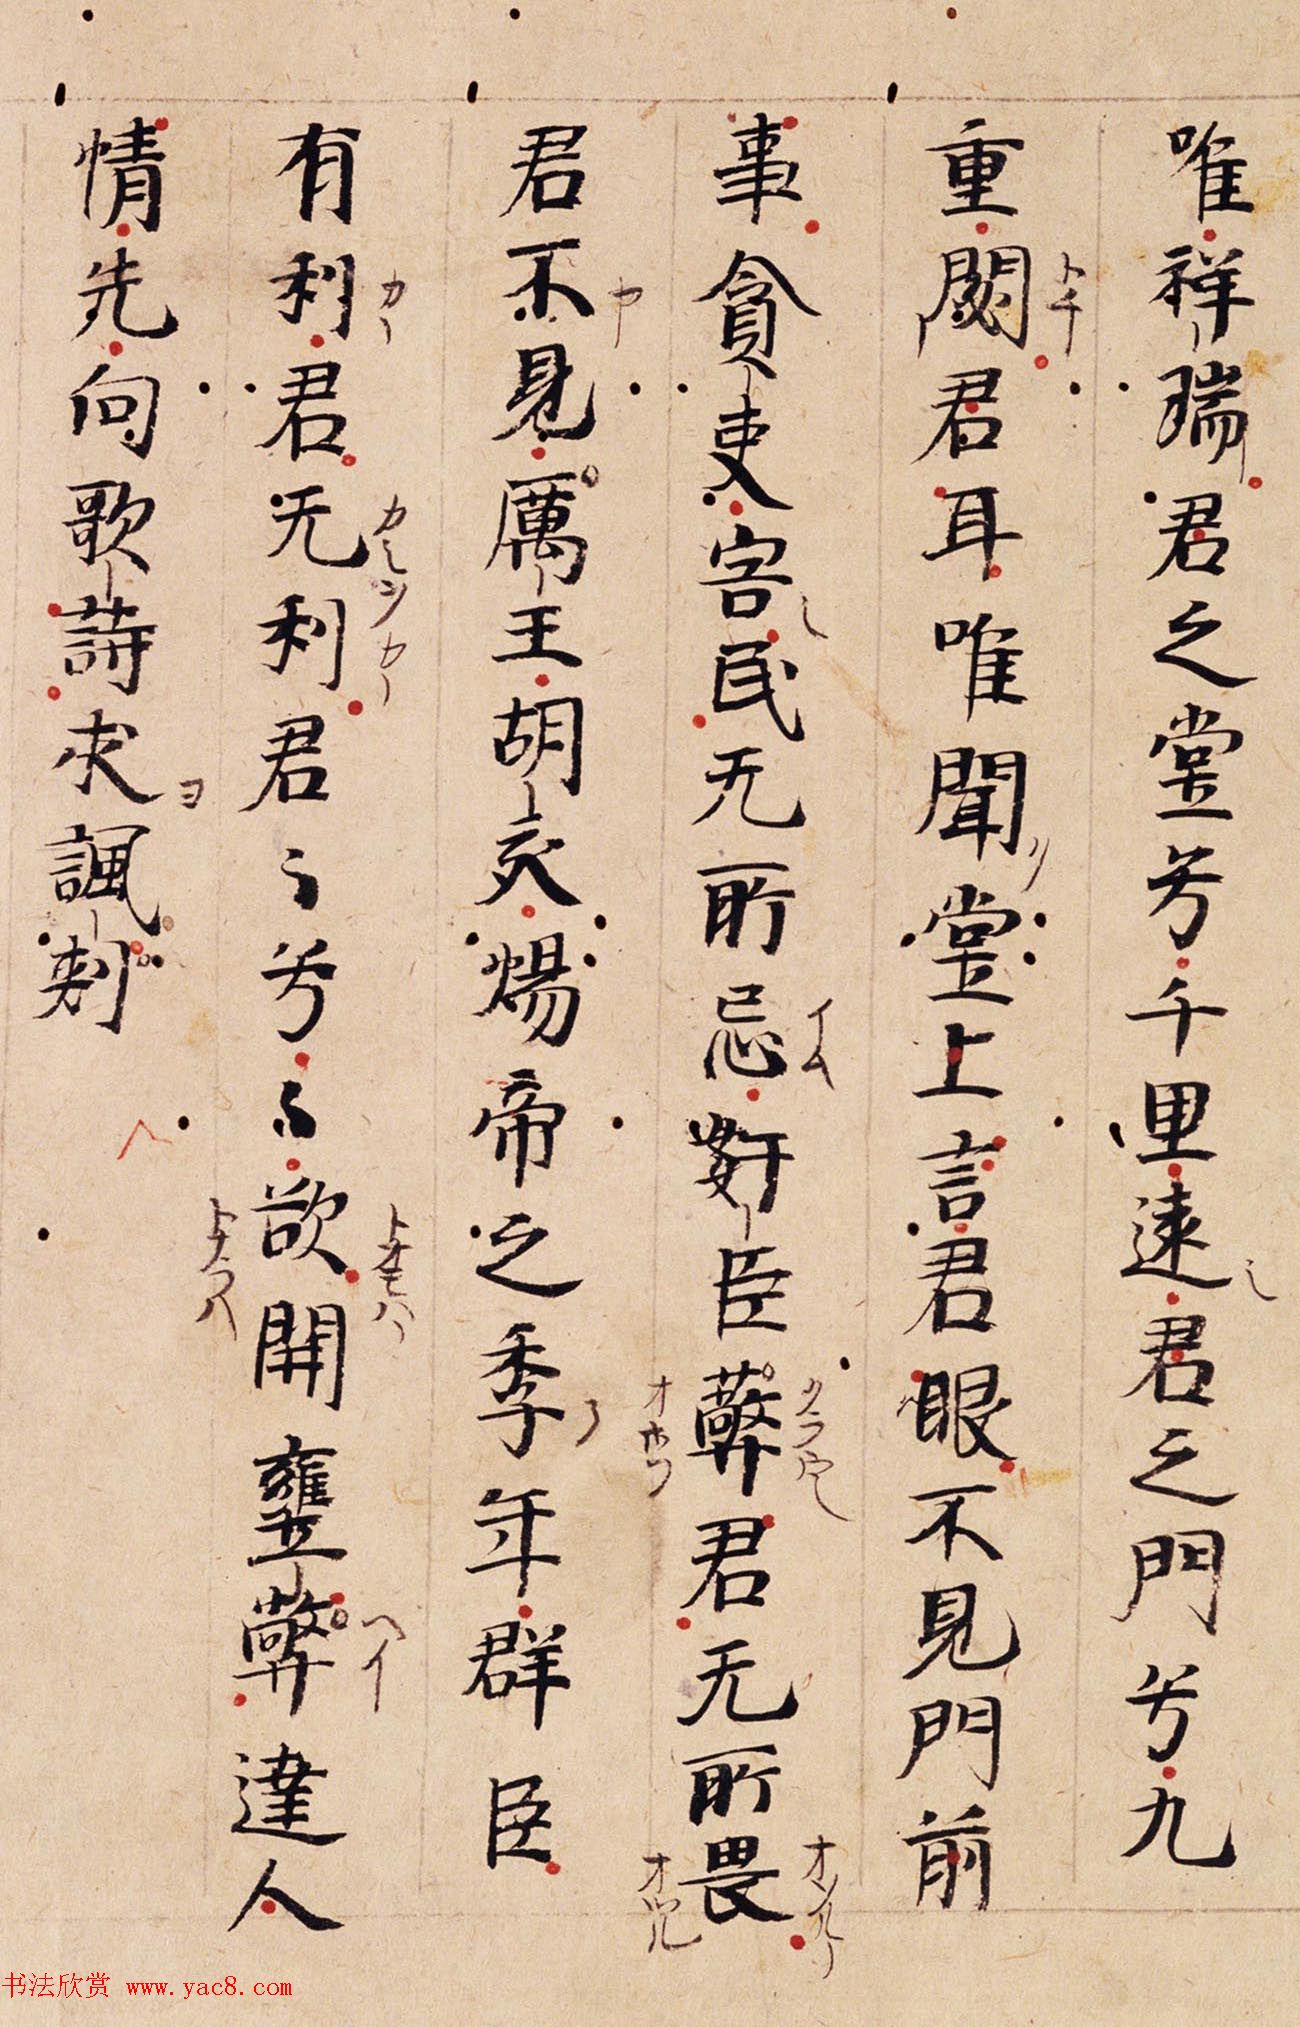 唯祥瑞君之堂兮千里遠君之門兮九
重閟君耳唯聞堂上言君眼不見門前
事貪吏害民无所忌奸臣蔽君无所畏
君不見厲王胡亥煬帝之季年群臣
有利君无利君々兮々欲開壅蔽達人
情先向歌詩求諷刺
书法欣赏 www.yac8.com